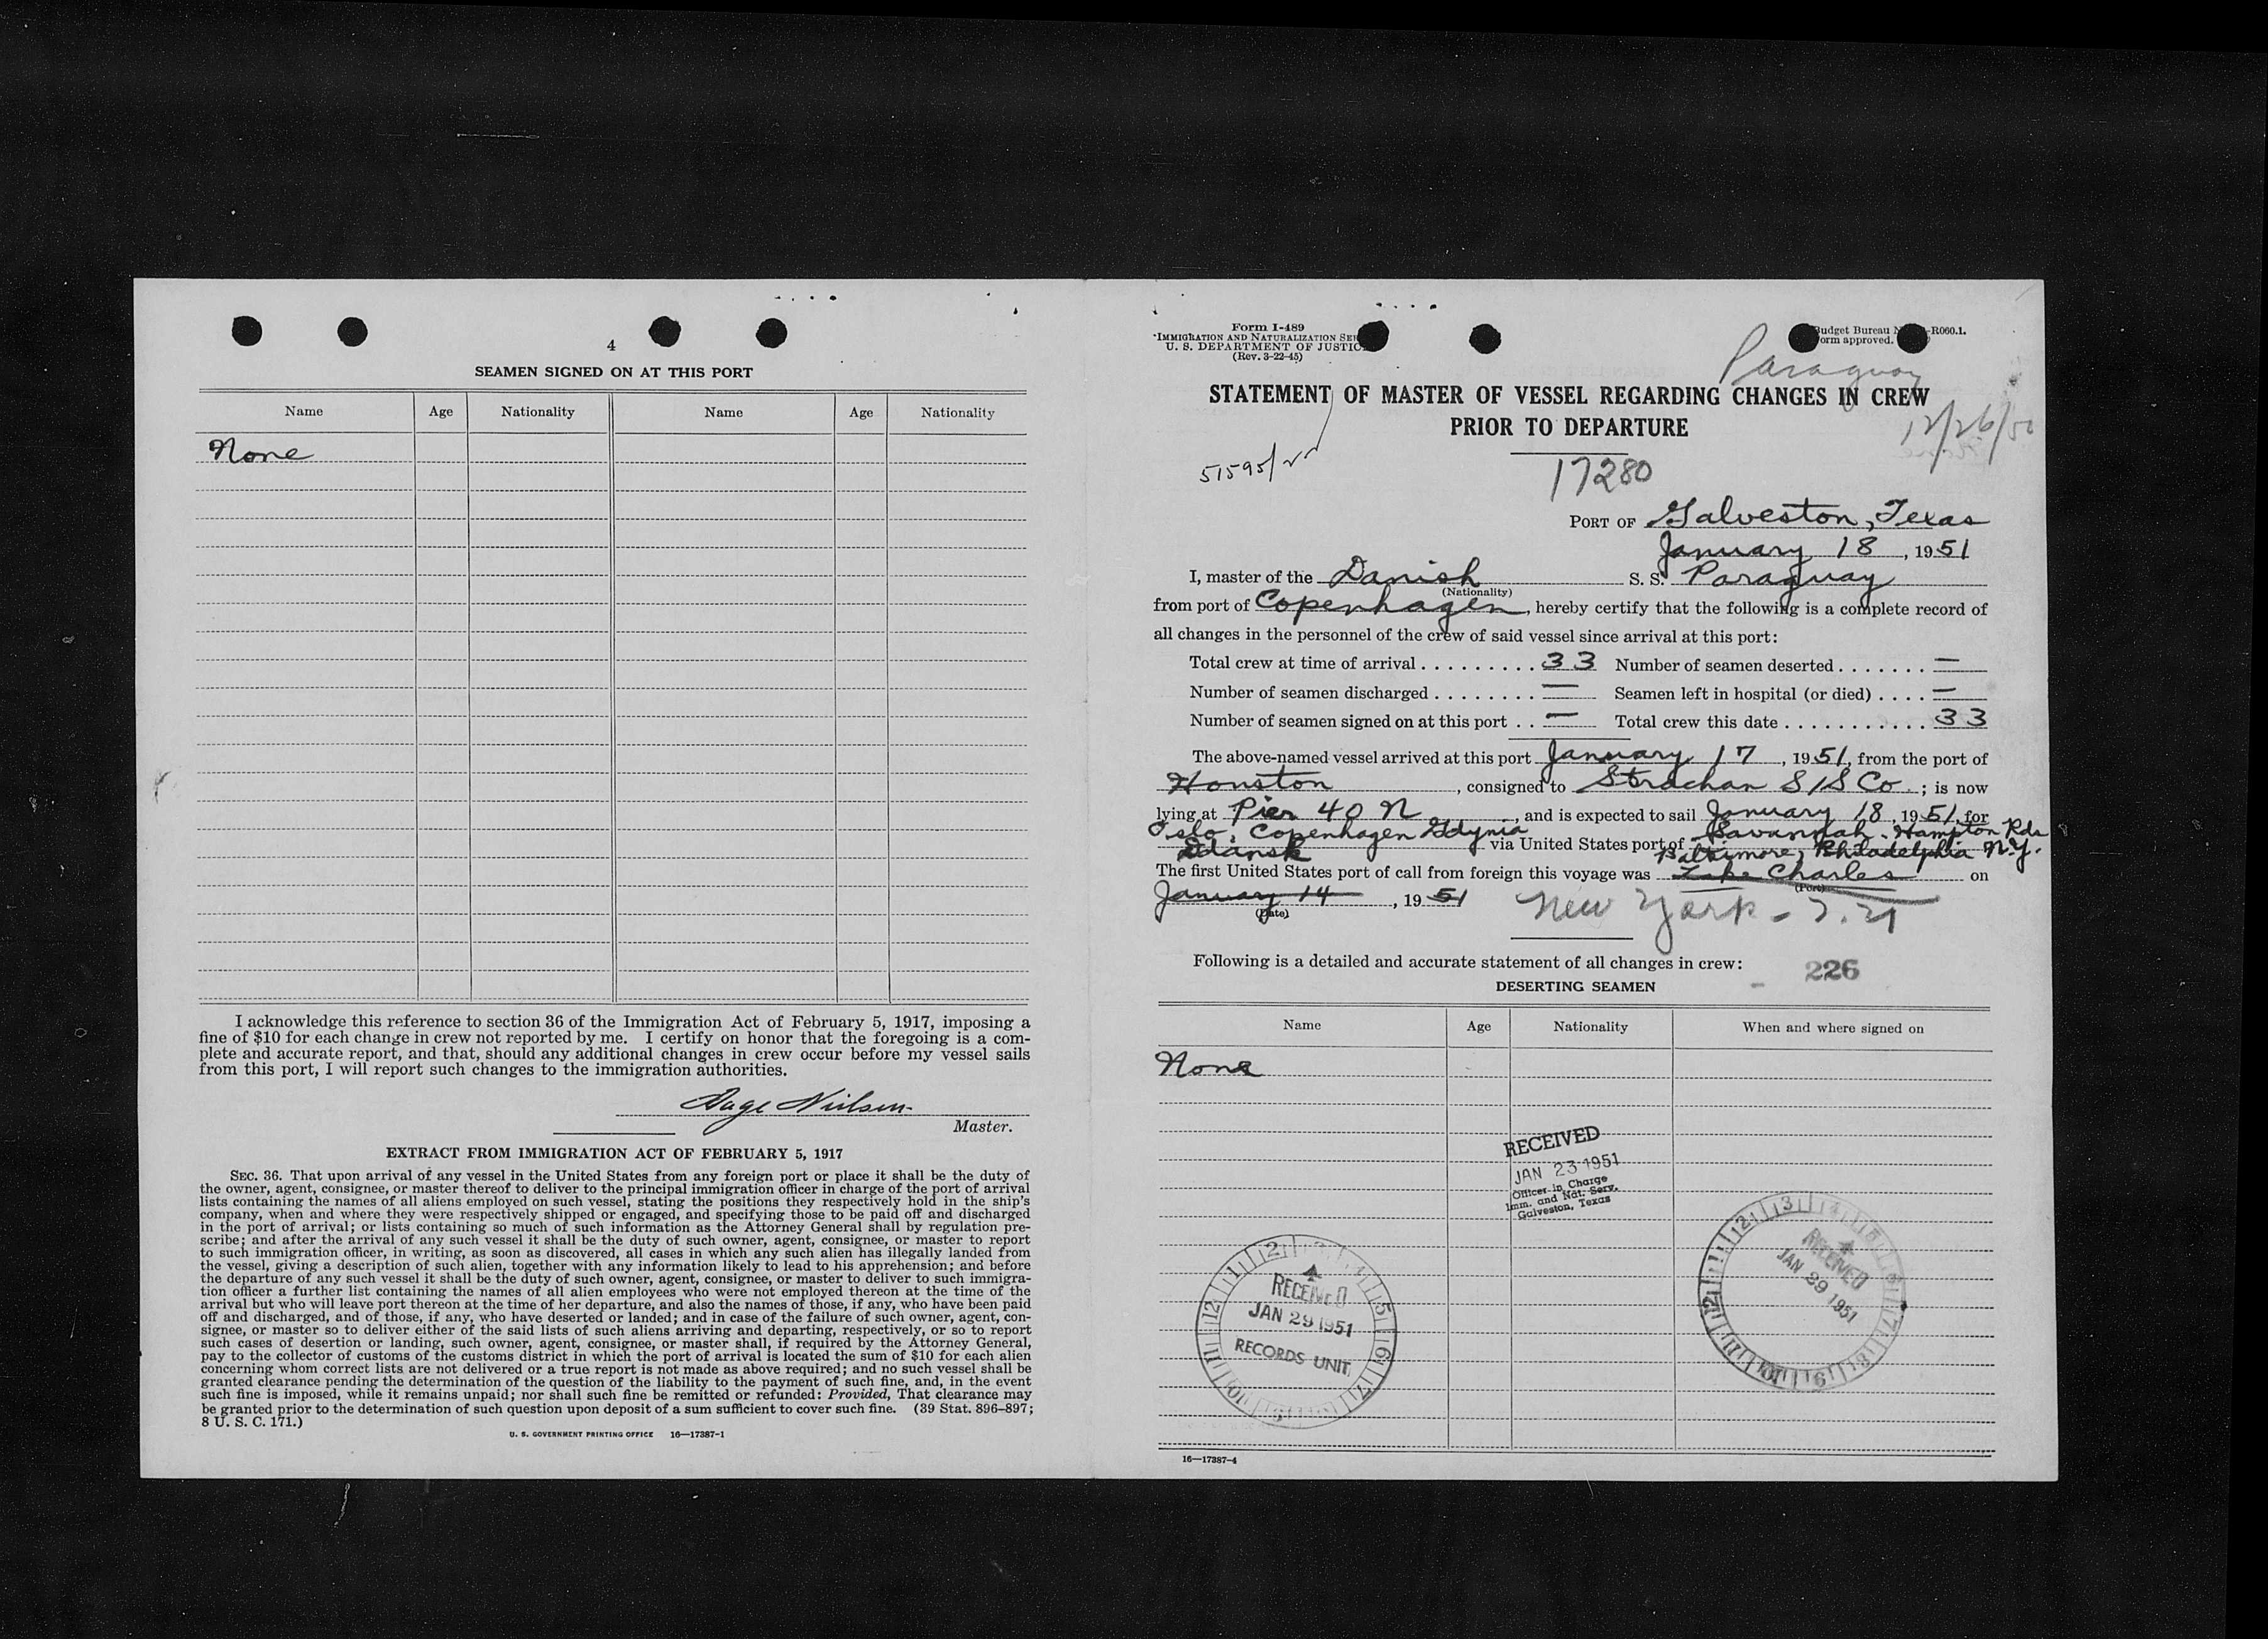 4
SEAMEN SIGNED ON AT THIS PORT
Name Age Nationality Name Age Nationality
None
I acknowledge this reference to section 36 of the Immigration Act of February 5, 1917, imposing a
fine of $10 for each change in crew not reported by me. I certify on honor that the foregoing is a com-
plete and accurate report, and that, should any additional changes in crew occur before my vessel sails
from this port, I will report such changes to the immigration authorities.
Aage Nielsen
Master.
EXTRACT FROM IMMIGRATION ACT OF FEBRUARY 5, 1917
SEC. 36. That upon arrival of any vessel in the United States from any foreign port or place it shall be the duty of
the owner, agent, consignee, or master thereof to deliver to the principal immigration officer in charge of the port of arrival
lists containing the names of all aliens employed on such vessel, stating the positions they respectively hold in the ship's
company, when and where they were respectively shipped or engaged, and specifying those to be paid off and discharged
in the port of arrival; or lists containing so much of such information as the Attorney General shall by regulation pre-
scribe; and after the arrival of any such vessel it shall be the duty of such owner, agent, consignee, or master to report
to such immigration officer, in writing, as soon as discovered, all cases in which any such alien has illegally landed from
the vessel, giving a description of such alien, together with any information likely to lead to his apprehension; and before
the departure of any such vessel it shall be the duty of such owner, agent, consignee, or master to deliver to such immigra-
tion officer a further list containing the names of all alien employees who were not employed thereon at the time of the
arrival but who will leave port thereon at the time of her departure, and also the names of those, if any, who have been paid
off and discharged, and of those, if any, who have deserted or landed; and in case of the failure of such owner, agent, con-
signee, or master so to deliver either of the said lists of such aliens arriving and departing, respectively, or so to report
such cases of desertion or landing, such owner, agent, consignee, or master shall, if required by the Attorney General,
pay to the collector of customs of the customs district in which the port of arrival is located the sum of $10 for each alien
concerning whom correct lists are not delivered or a true report is not made as above required; and no such vessel shall be
granted clearance pending the determination of the question of the liability to the payment of such fine, and, in the event
such fine is imposed, while it remains unpaid; nor shall such fine be remitted or refunded: Provided, That clearance may
be granted prior to the determination of such question upon deposit of a sum sufficient to cover such fine. (39 Stat. 896–897;
8 U. S. C. 171.)
U. S. GOVERNMENT PRINTING OFFICE 16—17387-1
Form I-489
IMMIGRATION AND NATURALIZATION SER
U. S. DEPARTMENT OF JUSTIC
(Rev. 3-22-45)
udget Bureau N -R060.1.
orm approved.
Paraguay
STATEMENT OF MASTER OF VESSEL REGARDING CHANGES IN CREW
PRIOR TO DEPARTURE
12/26/50
17280
PORT OF Galveston, Texas
January 18, 1951
I, master of the Danish S. S. Paraguay
(Nationality)
from port of Copenhagen, hereby certify that the following is a complete record of
all changes in the personnel of the crew of said vessel since arrival at this port:
Total crew at time of arrival . . . . . . . . . 33 Number of seamen deserted . . . . . . . —
Number of seamen discharged . . . . . . . . — Seamen left in hospital (or died) . . . . —
Number of seamen signed on at this port . . — Total crew this date . . . . . . . . . . . . 33
The above-named vessel arrived at this port January 17, 1951, from the port of
Houston, consigned to Strachan S/S Co; is now
lying at Pier 40 N, and is expected to sail January 18, 1951, for
Oslo, Copenhagen Gdynia Savannah, Hampton Rds
Gdansk via United States port of Baltimore, Philadelphia N.Y.
The first United States port of call from foreign this voyage was Lake Charles on
(Port)
January 14, 1951
(Date)
New York
Following is a detailed and accurate statement of all changes in crew:
226
DESERTING SEAMEN
Name Age Nationality When and where signed on
None
RECEIVED
JAN 23 1951
Officer in Charge
Imm. and Nat. Serv.
Galveston, Texas
RECEIVED
JAN 29 1951
RECORDS UNIT
RECEIVED
JAN 29 1951
16—17387-4